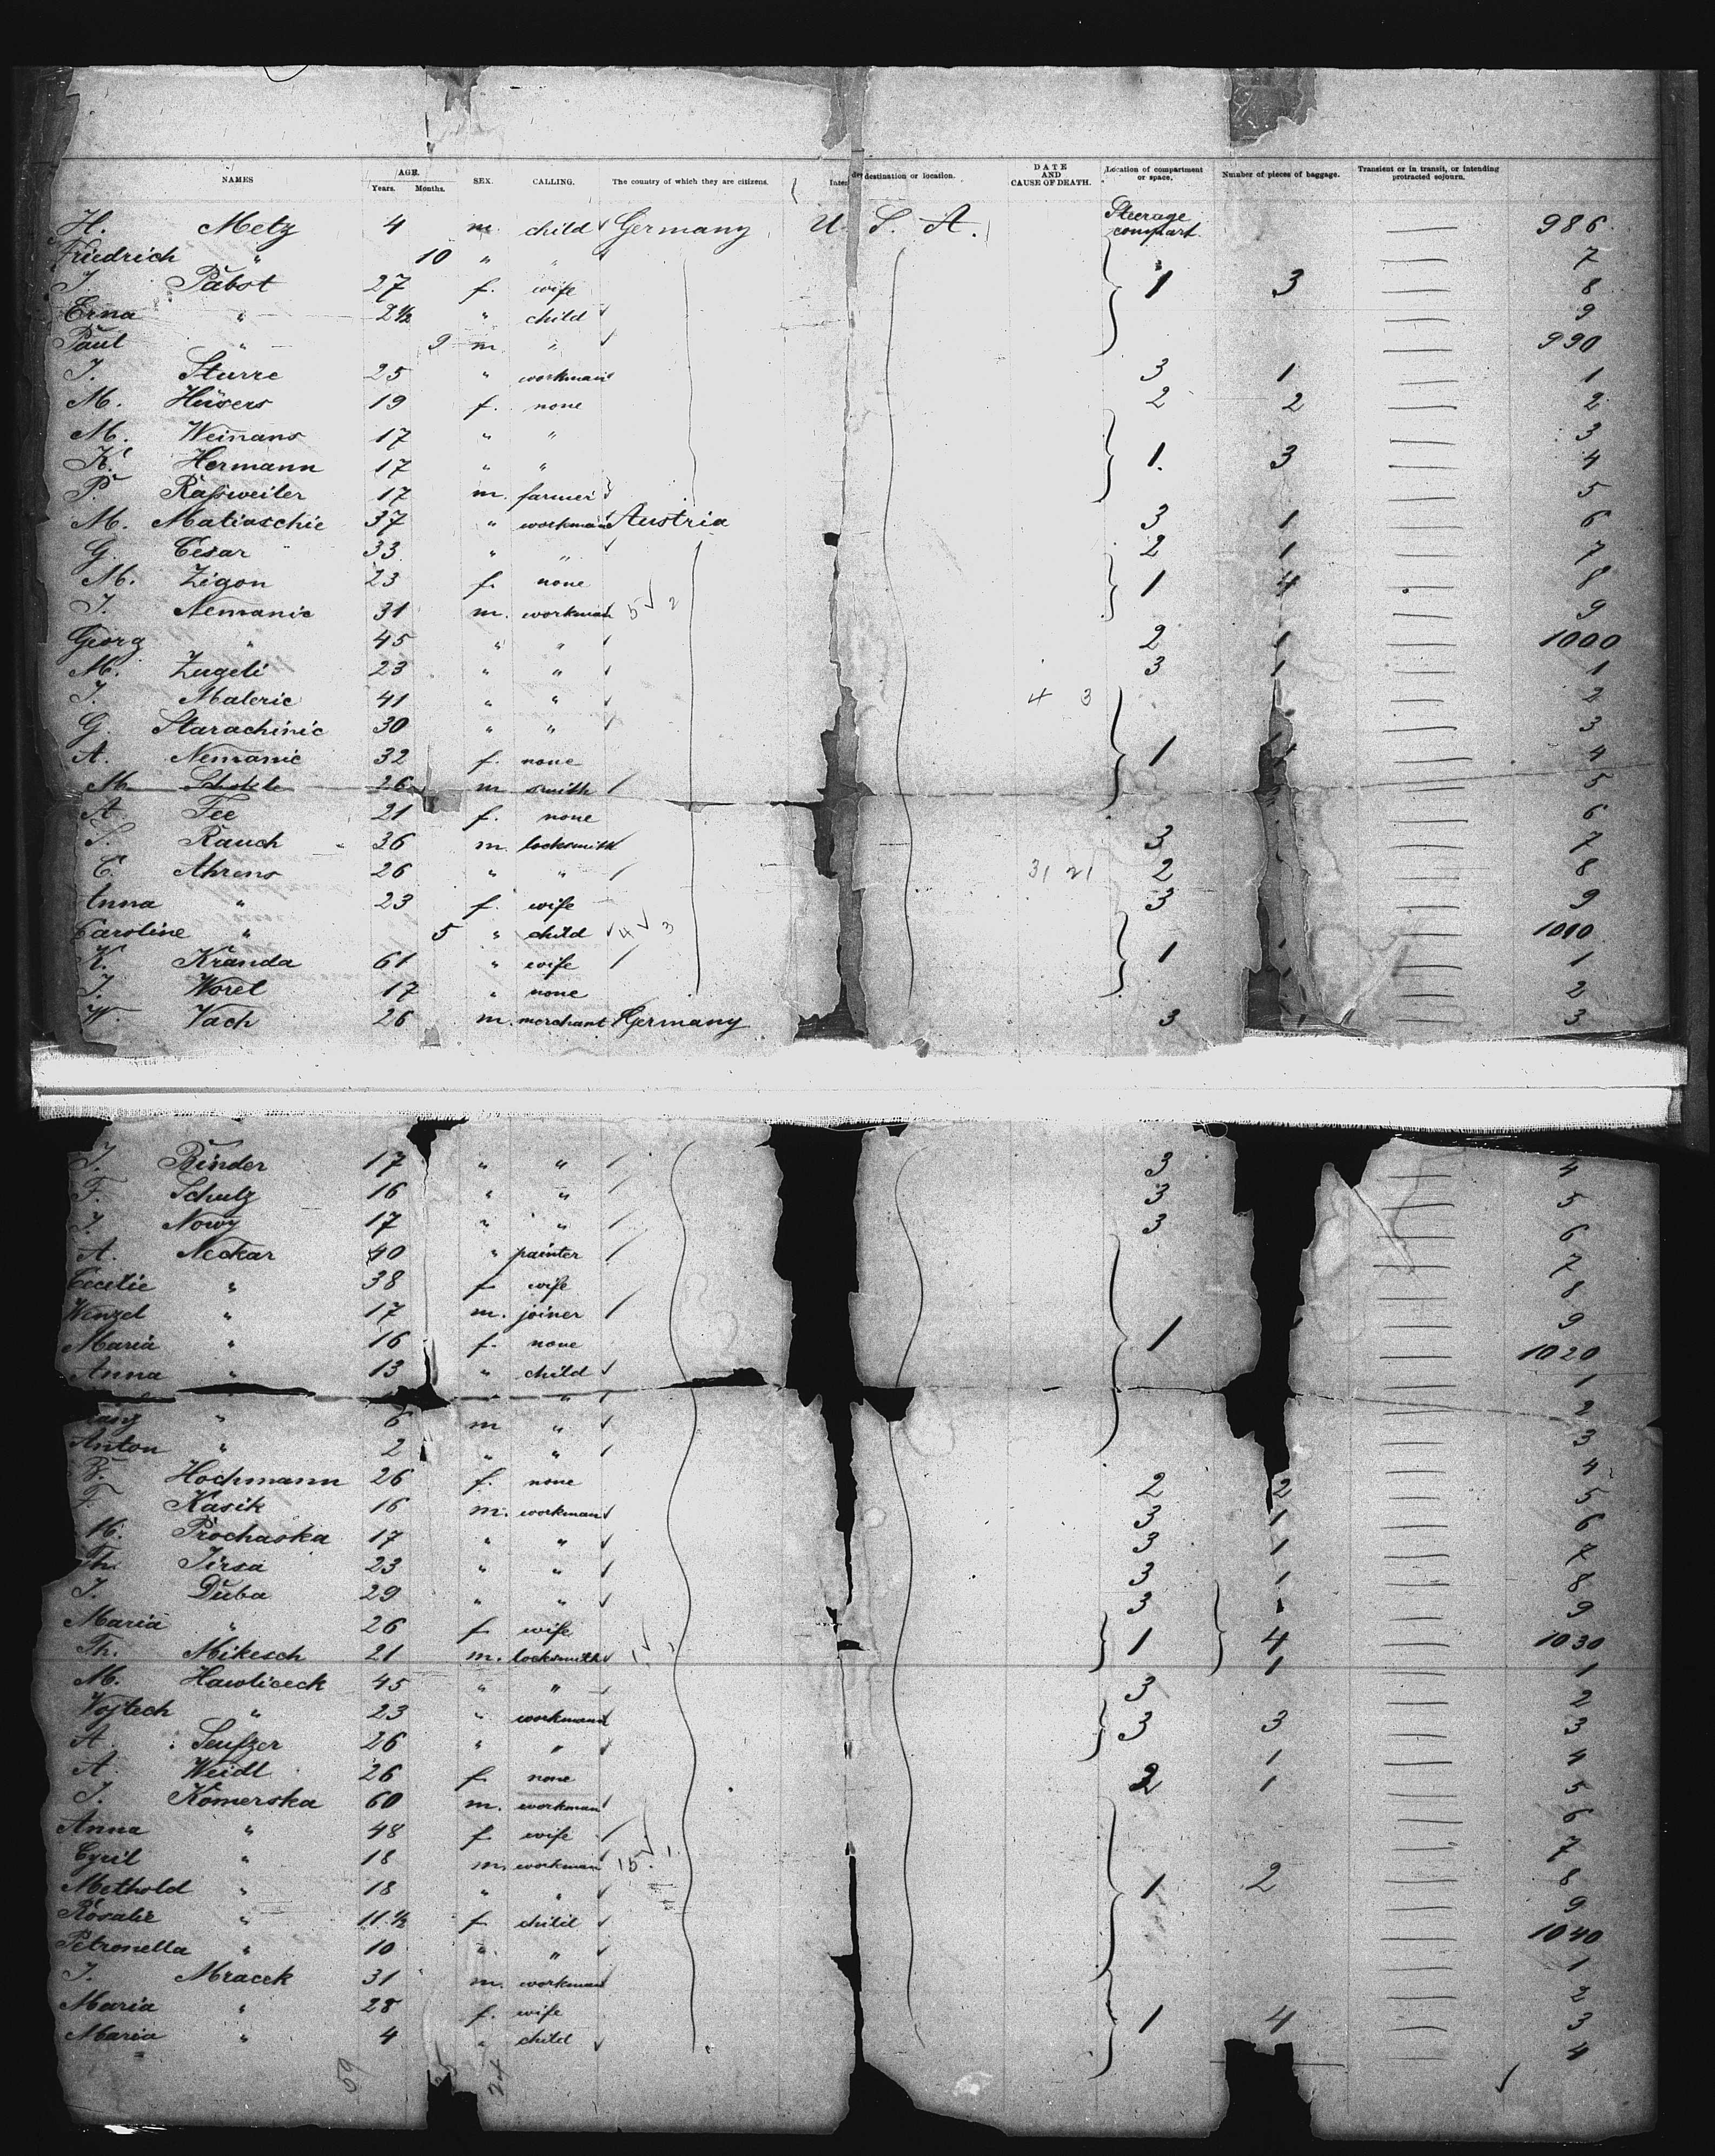 NAMES AGE. Years. Months. SEX. CALLING. The country of which they are citizens. destination or location. DATE AND CAUSE OF DEATH. Location of compartment or space. Number of pieces of baggage. Transient or in transit, or intending protracted sojourn.
H. Metz 4 m. child Germany U. S. A. Steerage compart. — 986
Friedrich " 10 " " — 7
J. Pabst 27 f. wife 1 3 — 8
Erna " 2½ " child — 9
Paul " 9 m " — 990
J. Sturre 25 " workman 3 1 — 1
M. Hüsers 19 f. none 2 2 — 2
M. Weinans 17 " " — 3
K. Hermann 17 " " 1. 3 — 4
P. Raßweiler 17 m. farmer — 5
M. Matiaschic 37 " workman Austria 3 1 — 6
G. Cesar 33 " " 2 1 — 7
M. Zigon 23 f. none 1 4 — 8
J. Nemanic 31 m. workman 5 2 — 9
Georg " 45 " " 2 1 — 1000
M. Zugeli 23 " " 3 1 — 1
J. Maleric 41 " " 4 3 — 2
G. Starachinic 30 " " — 3
A. Nemanic 32 f. none 1 — 4
M. 26 m smith — 5
A. Fee 21 f. none — 6
S. Rauch 36 m. locksmith 3 — 7
C. Ahrens 26 " " 31 21 2 — 8
Anna " 23 f. wife 3 — 9
Caroline " 5 " child 4 3 — 1010
K. Kranda 61 " wife 1 — 1
J. Worel 17 " none — 2
W. Vach 26 m. merchant Germany 3 — 3
J. Binder 17 " " 3 — 4
F. Schulz 16 " " 3 — 5
J. Nowy 17 " " 3 — 6
A. Neckar 40 " painter — 7
Cecilie " 38 f. wife — 8
Wenzel " 17 m. joiner — 9
Maria " 16 f. none 1 — 1020
Anna " 13 " child — 1
" " — 2
" 6 m " — 3
Anton " 2 " " — 4
B. Hochmann 26 f. none 2 2 — 5
F. Kasik 16 m. workman 3 1 — 6
M. Prochaska 17 " " 3 1 — 7
Th. Jirsa 23 " " 3 1 — 8
J. Duba 29 " " 3 — 9
Maria " 26 f. wife 1 4 — 1030
Th. Mikesch 21 m. locksmith 1 — 1
M. Hawliceck 45 " " 3 — 2
Vojtech " 23 " workman 3 3 — 3
A. Seufzer 26 " " 1 — 4
A. Weidl 26 f. none 2 1 — 5
J. Komerska 60 m. workman — 6
Anna " 48 f. wife — 7
Cyril " 18 m. workman 15 1 — 8
Methold " 18 " " 1 2 — 9
Rosalie " 11.½ f. child — 1040
Petronella " 10 " " — 1
J. Mracek 31 m. workman — 2
Maria " 28 f. wife 1 4 — 3
Maria " 4 " child — 4
59 24